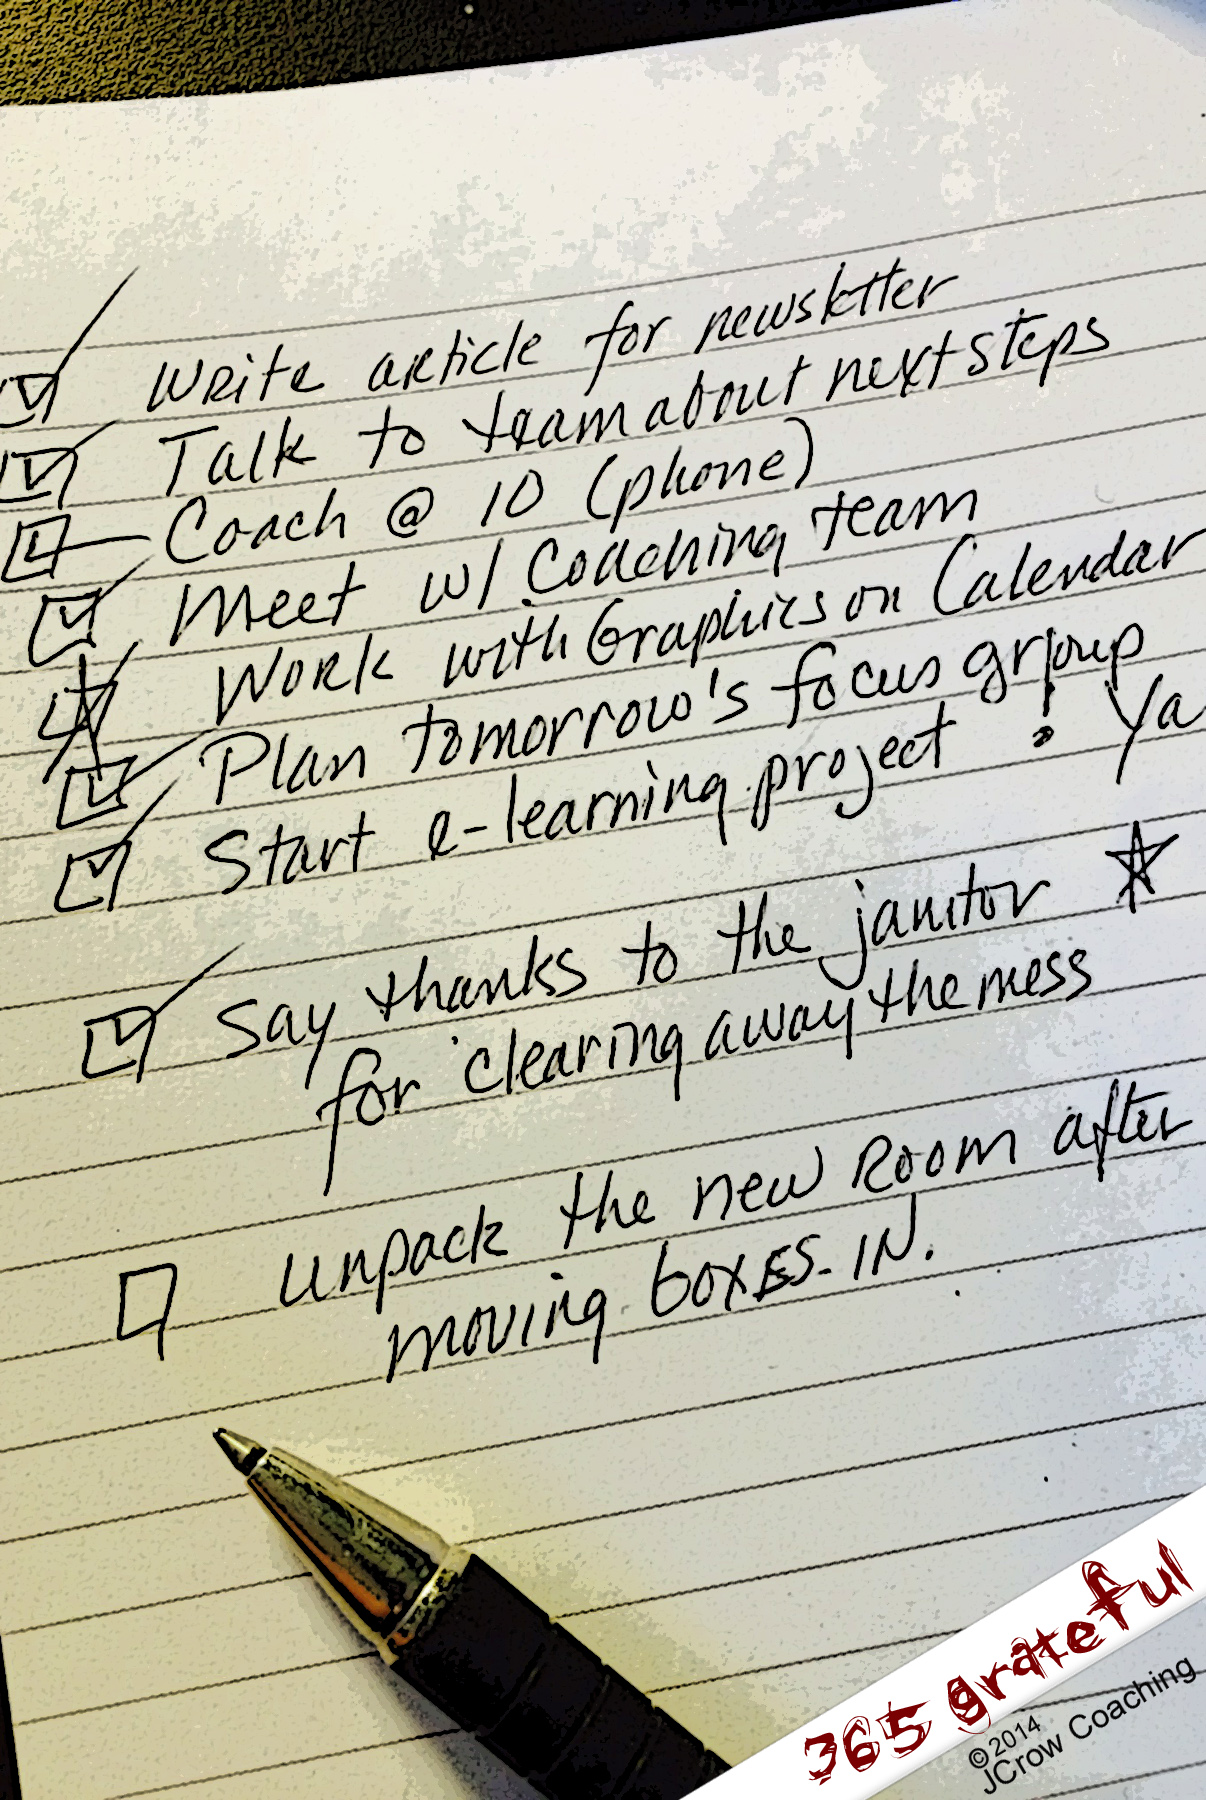 Write article for newsletter
Talk to team about next steps
Coach @ 10 (phone)
Meet w/ Coaching team
Work with Graphics on Calendar
Plan tomorrow's focus group
Start e-learning project ! Ya
Say thanks to the janitor
for clearing away the mess
Unpack the new Room after
moving boxes-IN.
365 grateful
©2014
JCrow Coaching